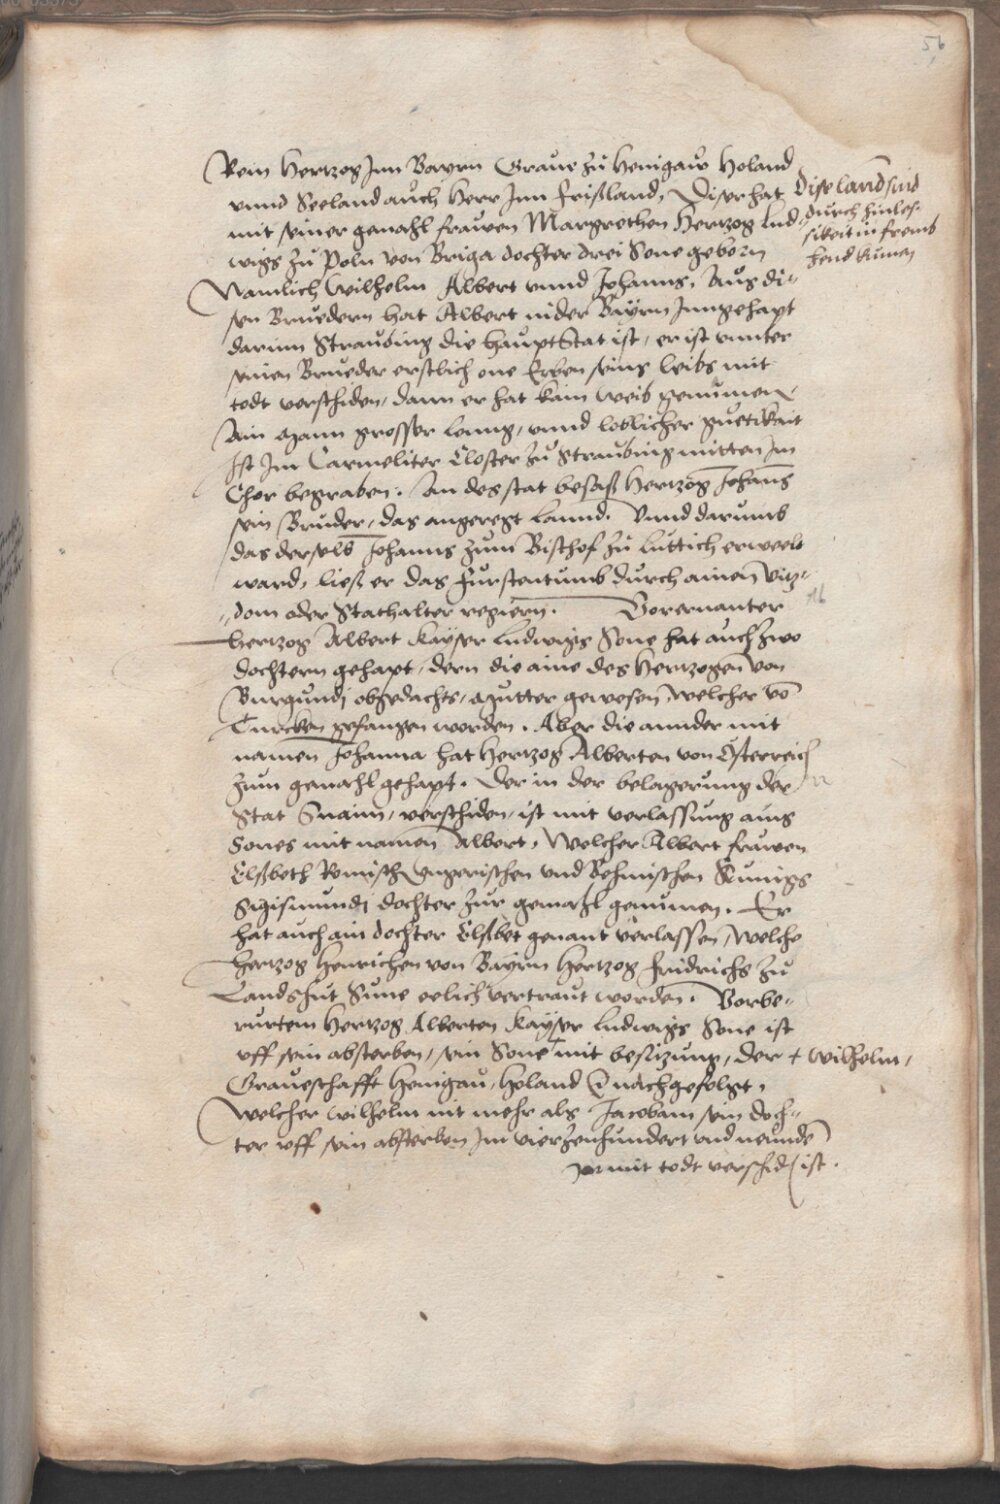 56
Rein Hertzog Inn Bayrn Graue zu Henigaw Holand
vnnd Seeland auch Herr Inn frißland, Diser hat
mit seiner gemahl frawen Margrethen Hertzog Lud-
wigs zu Poln von Briga dochter drei Sone geborn
Dise land sind
durch hinles-
sikeit in fremb
hend kumen
Namlich Wilhelm Albert vnnd Johanns, Auß di-
sen Bruedern hat Albert nider Bayrn Inngehapt
darinn Straubing die hauptstat ist, er ist vnnter
seinen Brueder erstlich one Erben seins leibs mit
todt verschiden, dann er hat kain weib genumen,
Ain Mann grosser leng, vnnd loblicher guetikait
Ist Im Carmeliter Closter zu Straubing mitten Im
Chor begraben. An des stat besaß Hertzog Johanns
sein Bruder, das angeregt Lannd. Vnnd darumb
das derselb Johanns zum Bischof zu Luttich erweelt
ward, ließ er das furstentumb durch ainen vitz-
dom oder Stathalter regiern. Vorernanter
Hertzog Albert Kayser Ludwigs Sone hat auch zwo
dochtern gehapt, dern die aine des Hertzogen von
Burgundj obgedachts, Mutter gewesen, welcher vo
Turcken gefangen worden. Aber die annder mit
namen Johanna hat Hertzog Alberten von Osterreich
zum gemahl gehapt. Der in der belagerung der
Stat Snaim, verschiden, ist mit verlassung ains
Sones mit namen Albert, Welcher Albert frawen
Elßbeth Romisch vngerischen vnd Behmischen Kunigs
Sigismundj dochter zur gemahl genumen. Er
hat auch ain dochter Elßbet genant verlassen, welche
Hertzog Henrichen von Bayrn Hertzog fridrichs zu
Landshut Sune eelich vertraut worden. Vorbe-
rurtem Hertzog Alberten Kayser Ludwigs Sone ist
vff sein absterben, sein Sone + mit besizung, der + Wilhelm,
Graueschafft Henigau, Holand nachgefolgt,
Welcher Wilhelm nit mehr als Jacobam sein doch-
ter vff sein absterben Im vierzenhundert vnd neunde
Jar mit todt verschid ist.